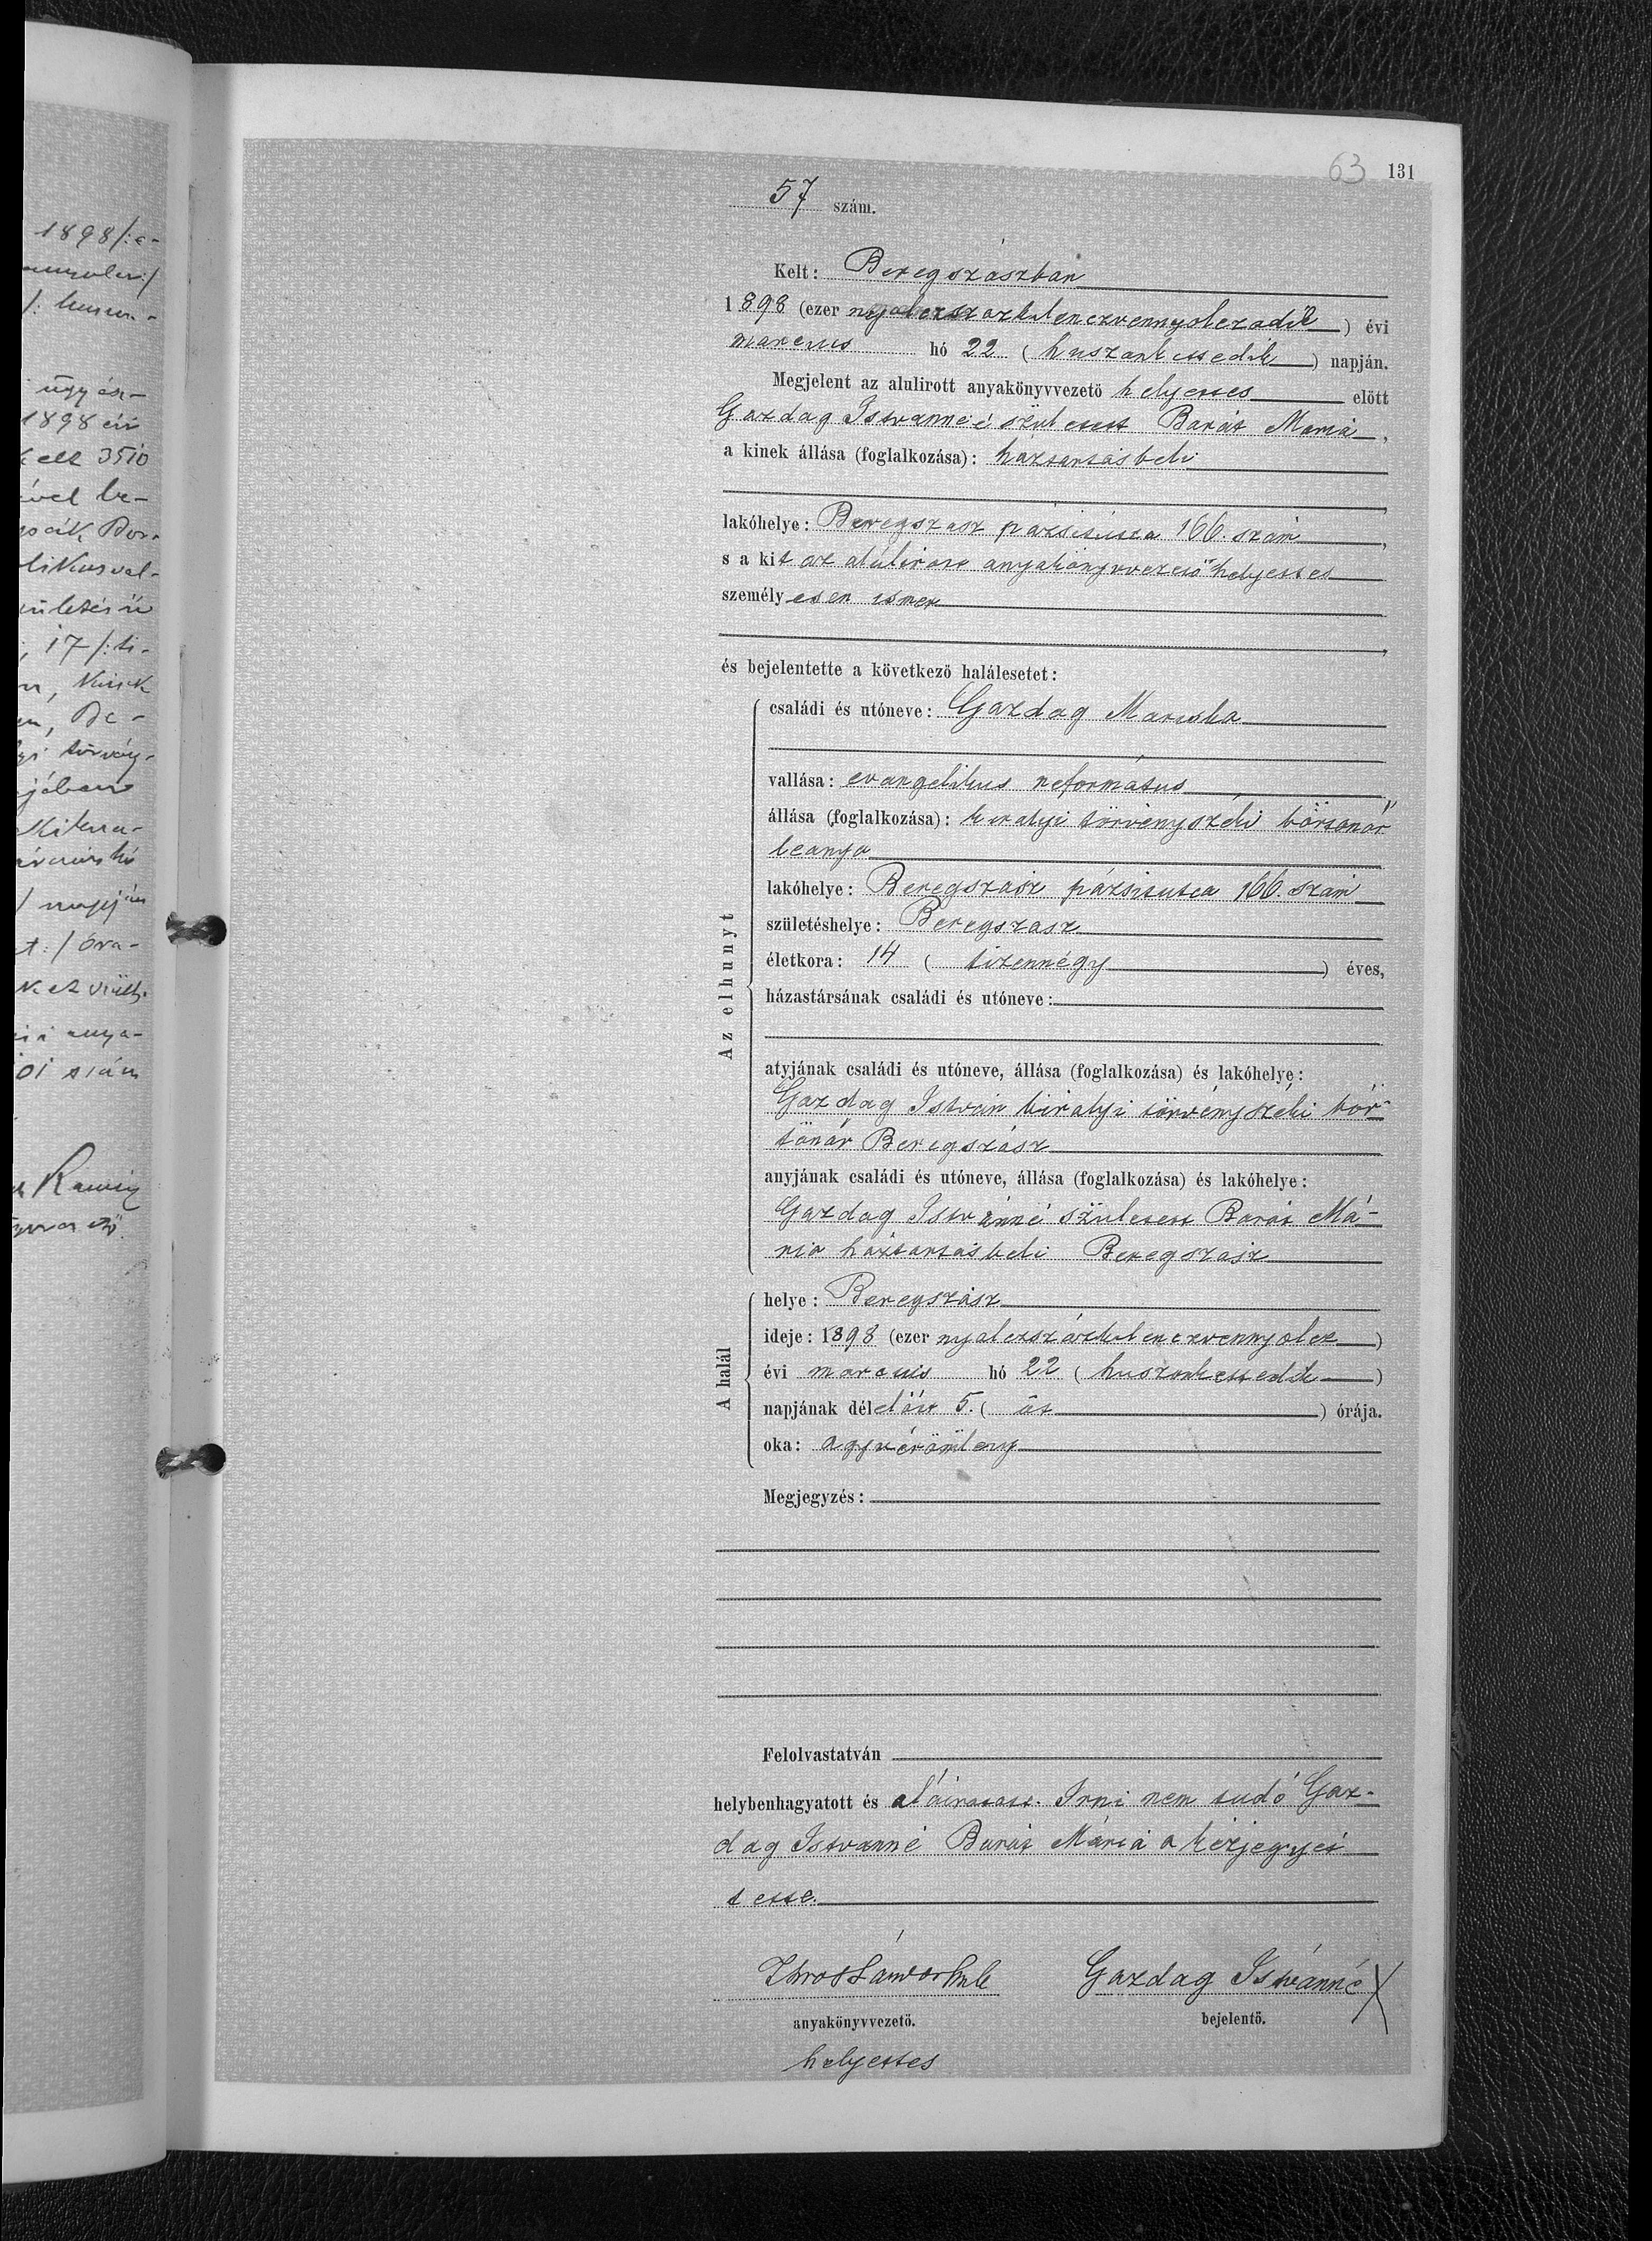 1898/:e-
/:
ügyész-
1898 évi
kelt 3510
ével be-
Bor-
likus val-
születésü
, 17 /: ti-
De-
gi törvény-
jában
/ napján
t: / óra-
i anya-
01 szám
63 131
57 szám.
Kelt: Beregszászban
1898 (ezer nyolczszázkilenczvennyolczadik) évi
marcius hó 22 (huszonkettedik) napján.
Megjelent az alulirott anyakönyvvezető helyettes előtt
Gazdag Istvánné született Barát Mária,
a kinek állása (foglalkozása): háztartásbeli
lakóhelye: Beregszász pázsitutca 166. szám,
s a kit az alúlirott anyakönyvvezető helyettes
személyesen ismer
és bejelentette a következő halálesetet:
Az elhunyt
családi és utóneve: Gazdag Mariska
vallása: evangelikus református
állása (foglalkozása): kiralyi törvényszéki börtönőr
leanya
lakóhelye: Beregszász pázsitutca 166. szám
születéshelye: Beregszász
életkora: 14 (tizennégy) éves,
házastársának családi és utóneve:
atyjának családi és utóneve, állása (foglalkozása) és lakóhelye:
Gazdag István kiralyi törvényszéki bör-
tönőr Beregszász
anyjának családi és utóneve, állása (foglalkozása) és lakóhelye:
Gazdag Istvánné született Barát Má-
ria háztartásbeli Beregszász
A halál
helye: Beregszász
ideje: 1898 (ezer nyolczszázkilenczvennyolcz)
évi marcius hó 22 (huszonkettedik)
napjának délelőtt 5. (öt) órája.
oka: agyvérömleny
Megjegyzés:
Felolvastatván
helybenhagyatott és aláíratott. Irni nem tudó Gaz-
dag Istvánné Barát Mária a kézjegyét
tette.
Gazdag Istvánné X
anyakönyvvezető. bejelentő.
helyettes